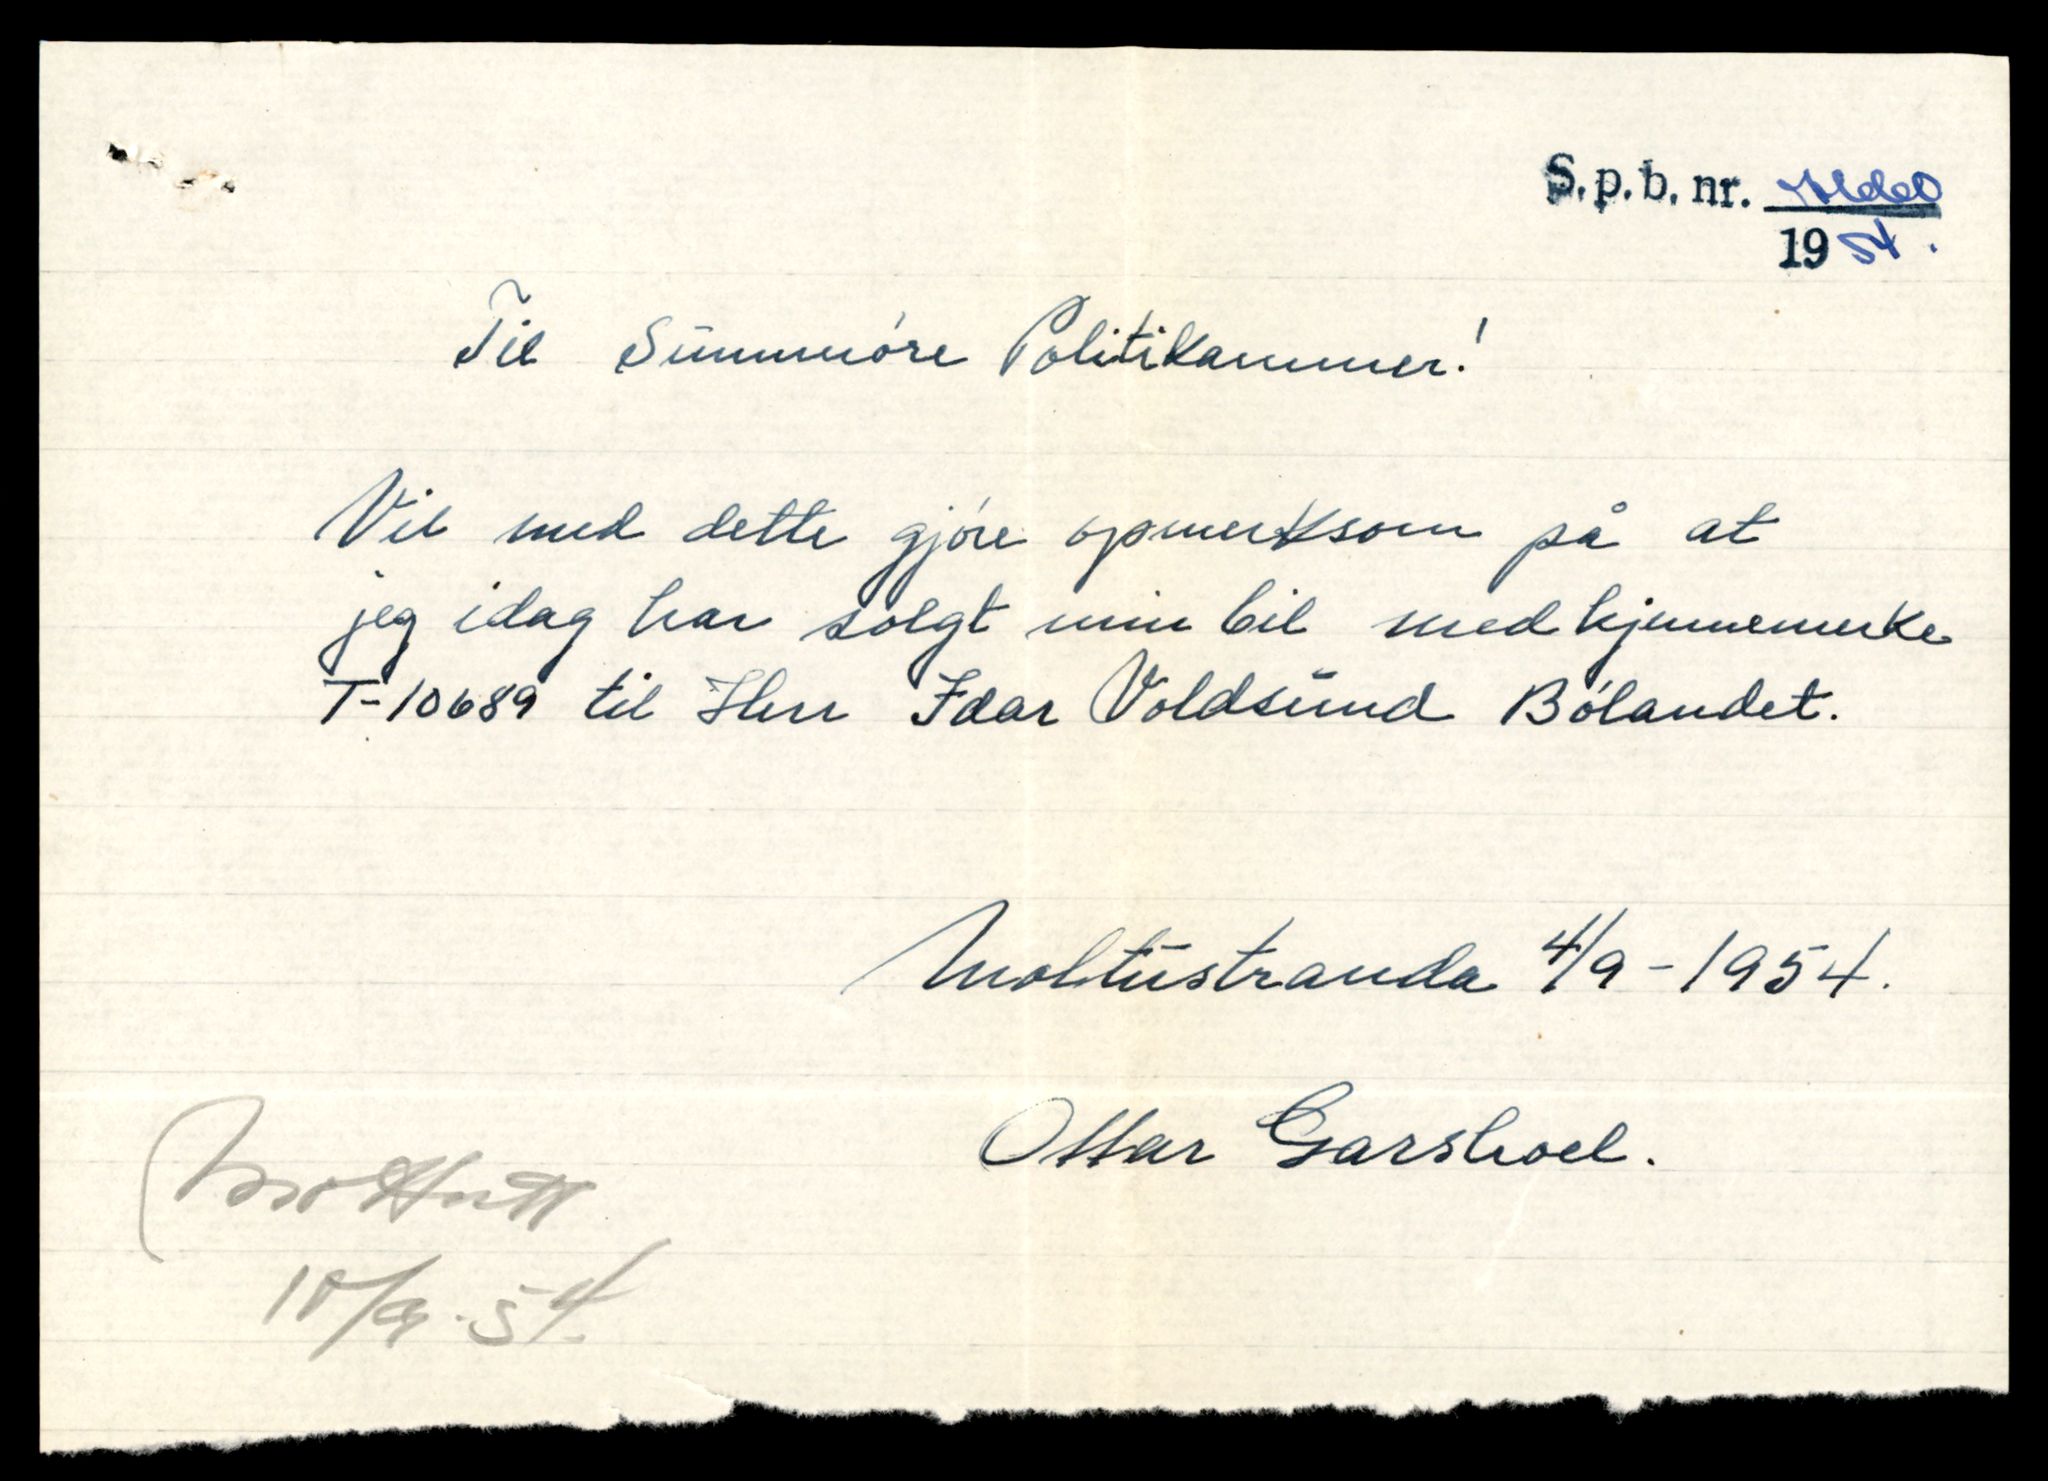 S.p.b. nr.
1954.
Til Sunnmóre Politikammer!
Vil med dette gjóre opmerksom på at
jeg idag har solgt min bil med kjennemerke
T-10689 til Herr Idar Voldsund Bólandet.
Moltustranda 4/9-1954.
Ottar Garshoel.
Notert
10/9.54.